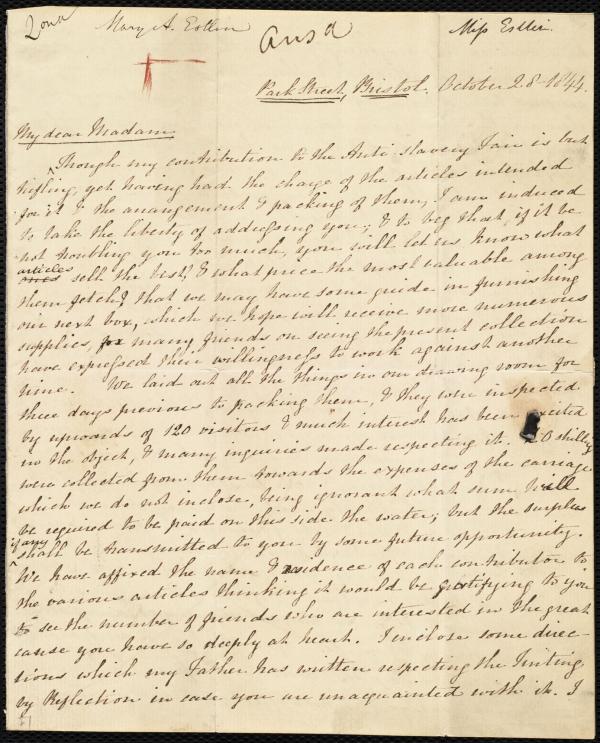 Mary A. Estlin
Ansd
Miss Estlin.
Park Street, Bristol. October 28-1844.
My dear Madam
Though my contribution to the Anti-slavery Fair is but
trifling, yet having had the charge of the articles intended
for it & the arrangement & packing of them, I am induced
to take the liberty of addressing you, & to beg that, if it be
not troubling you too much, you will let us know what
articles
ones sell the best, & what price the most valuable among
them fetch? that we may have some guide in furnishing
our next box, which we hope will receive more numerous
supplies, for many friends on seeing the present collection
have expressed their willingness to work against another
time. We laid out all the things in our drawing room for
three days previous to packing them, & they were inspected
by upwards of 120 visitors & much interest has been excited
in the object, & many inquiries made respecting it. 20 shillgs
were collected from them towards the expenses of the carriage
which we do not inclose, being ignorant what sum will
be required to be paid on this side the water; but the surplus
if any
shall be transmitted to you by some future opportunity.
We have affixed the name & residence of each contributor to
the various articles thinking it would be gratifying to you
to see the number of friends who are interested in the great
cause you have so deeply at heart. I inclose some direc-
sions which my Father has written respecting the Tinting
by Reflection in case you are unacquainted with it. I